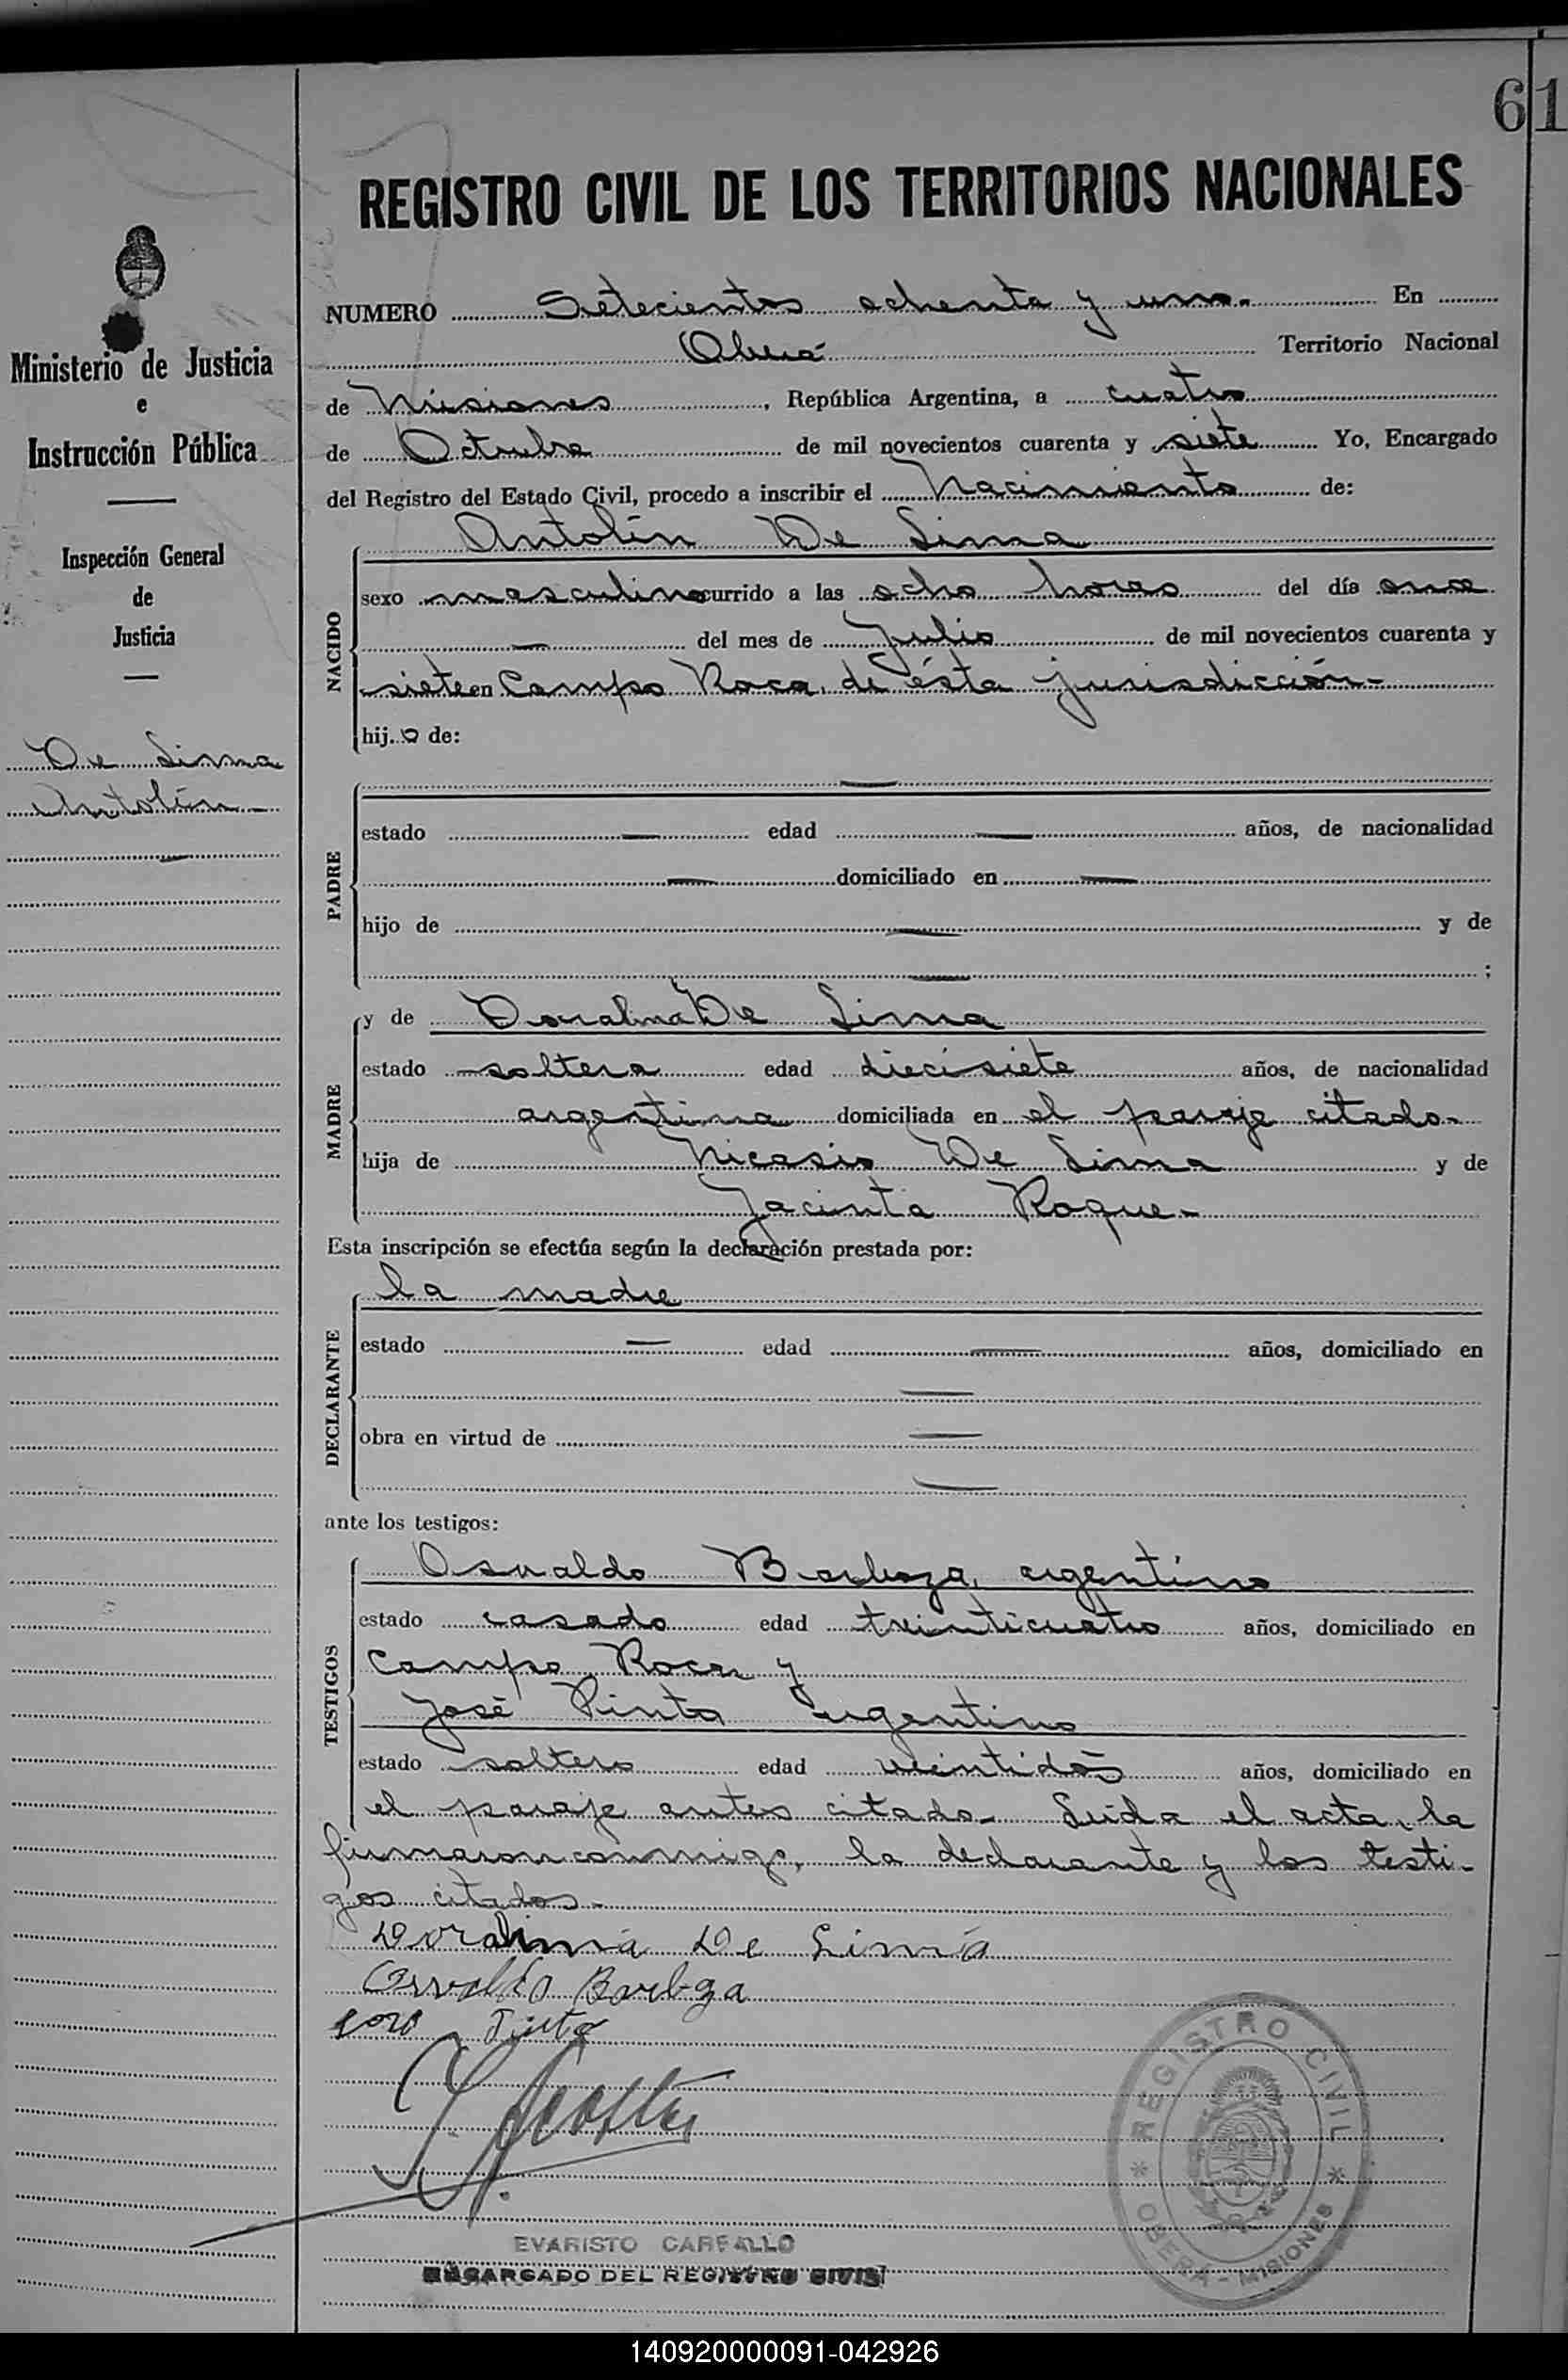 61
REGISTRO CIVIL DE LOS TERRITORIOS NACIONALES
NUMERO Setecientos ochenta y uno.- En
Oberá Territorio Nacional
de Misiones, República Argentina, a cuatro
de Octubre de mil novecientos cuarenta y siete Yo, Encargado
del Registro del Estado Civil, procedo a inscribir el Nacimiento de:
Ministerio de Justicia
e
Instrucción Pública
Inspección General
de
Justicia
De Lima
Antolín
NACIDO
Antolín De Lima
sexo masculino ocurrido a las ocho horas del día once
— del mes de Julio de mil novecientos cuarenta y
siete en Campo Roca, de ésta jurisdicción-
hijo de:
PADRE
—
estado — edad — años, de nacionalidad
— domiciliado en —
hijo de — y de
— ;
MADRE
y de Doralina De Lima
estado soltera edad diecisiete años, de nacionalidad
argentina domiciliada en el paraje citado-
hija de Nicasio De Lima y de
Jacinta Roque-
Esta inscripción se efectúa según la declaración prestada por:
DECLARANTE
la madre
estado — edad — años, domiciliado en
—
obra en virtud de —
—
ante los testigos:
TESTIGOS
Osvaldo Barboza, argentino
estado casado edad treinticuatro años, domiciliado en
Campo Roca y
José Pinto argentino
estado soltero edad veintidós años, domiciliado en
el paraje antes citado- Leída el acta, la
firmaron conmigo, la declarante y los testi-
gos citados-
Doralina De Lima
Osvaldo Barboza
Pinto
REGISTRO CIVIL
OBERÁ - MISIONES
EVARISTO CARBALLO
ENCARGADO DEL REGISTRO CIVIL
140920000091-042926